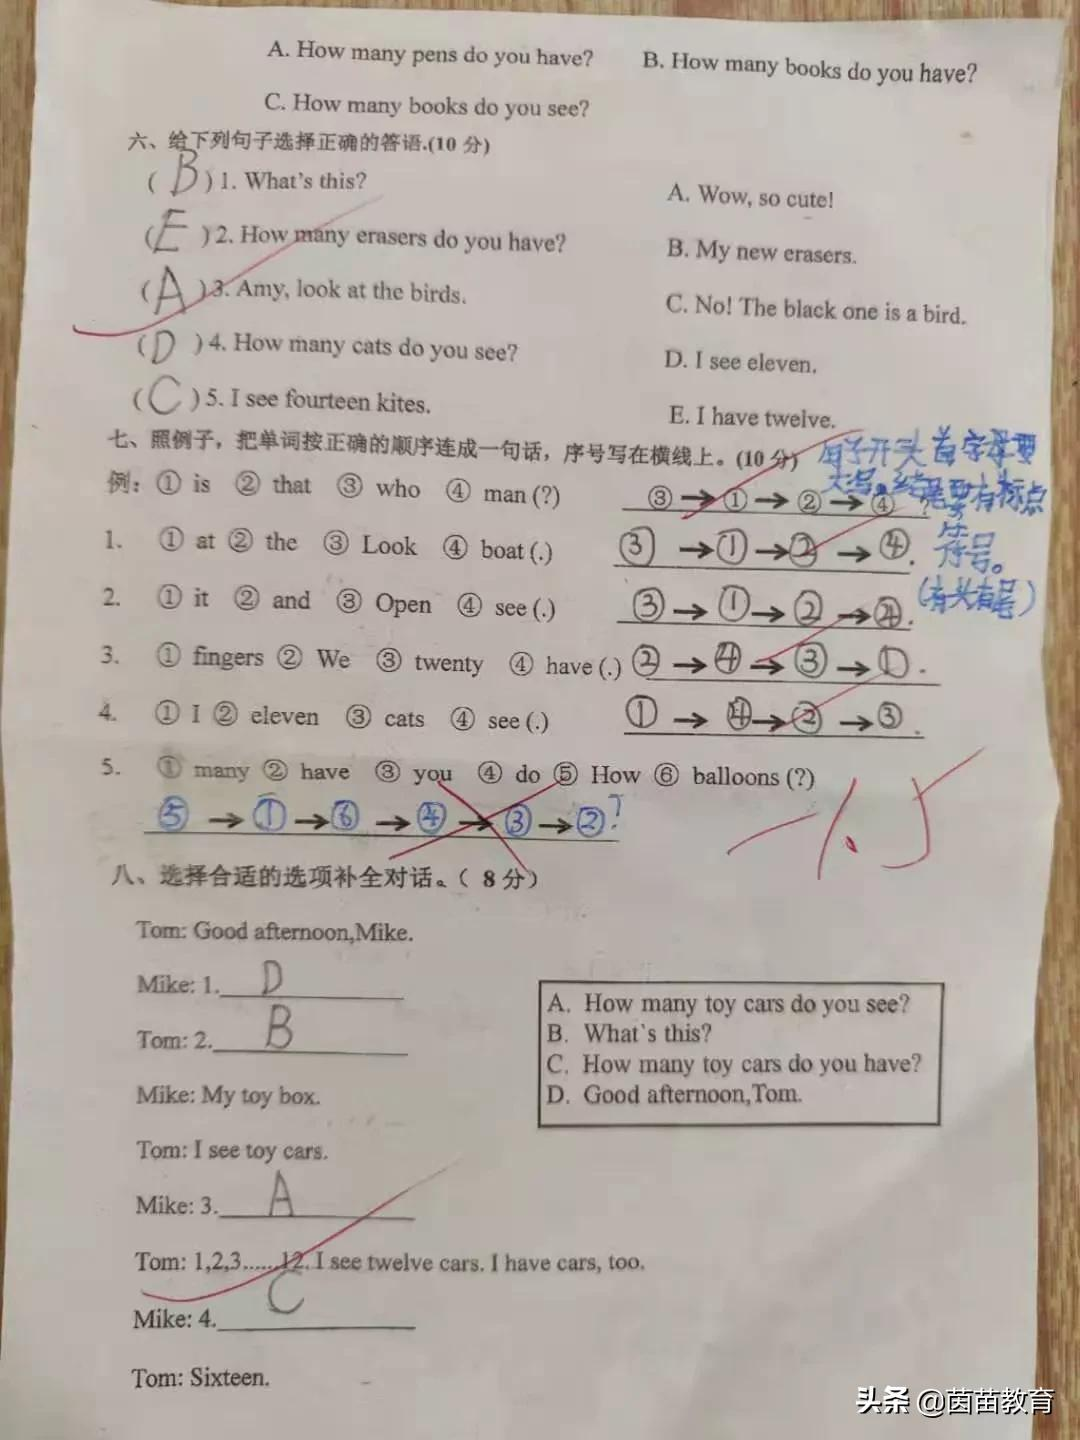 A. How many pens do you have? B. How many books do you have?
C. How many books do you see?
六、给下列句子选择正确的答语.(10 分)
( B ) 1. What's this? A. Wow, so cute!
( E ) 2. How many erasers do you have? B. My new erasers.
( A ) 3. Amy, look at the birds. C. No! The black one is a bird.
( D ) 4. How many cats do you see? D. I see eleven.
( C ) 5. I see fourteen kites. E. I have twelve.
七、照例子，把单词按正确的顺序连成一句话，序号写在横线上。(10 分)
句子开头首字母要
大写。结尾要有标点
符号。
(有头有尾)
例: ① is ② that ③ who ④ man (?) ③→①→②→④ ?
1. ① at ② the ③ Look ④ boat (.) ③→①→②→④.
2. ① it ② and ③ Open ④ see (.) ③→①→②→④.
3. ① fingers ② We ③ twenty ④ have (.) ②→④→③→①.
4. ① I ② eleven ③ cats ④ see (.) ①→④→②→③.
5. ① many ② have ③ you ④ do ⑤ How ⑥ balloons (?)
⑤→①→⑥→④→③→②?
-1.5
八、选择合适的选项补全对话。( 8 分)
Tom: Good afternoon,Mike.
Mike: 1. D
Tom: 2. B
Mike: My toy box.
Tom: I see toy cars.
Mike: 3. A
Tom: 1,2,3......12. I see twelve cars. I have cars, too.
Mike: 4. C
Tom: Sixteen.
A. How many toy cars do you see?
B. What`s this?
C. How many toy cars do you have?
D. Good afternoon,Tom.
头条 @茵苗教育